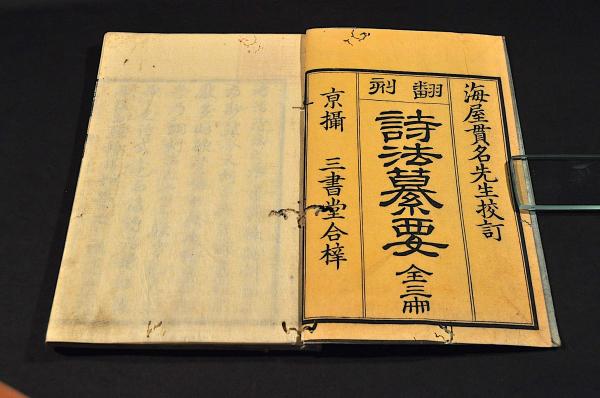 海屋貫名先生校訂
翻刻
詩法纂要
全三冊
京攝 三書堂合梓